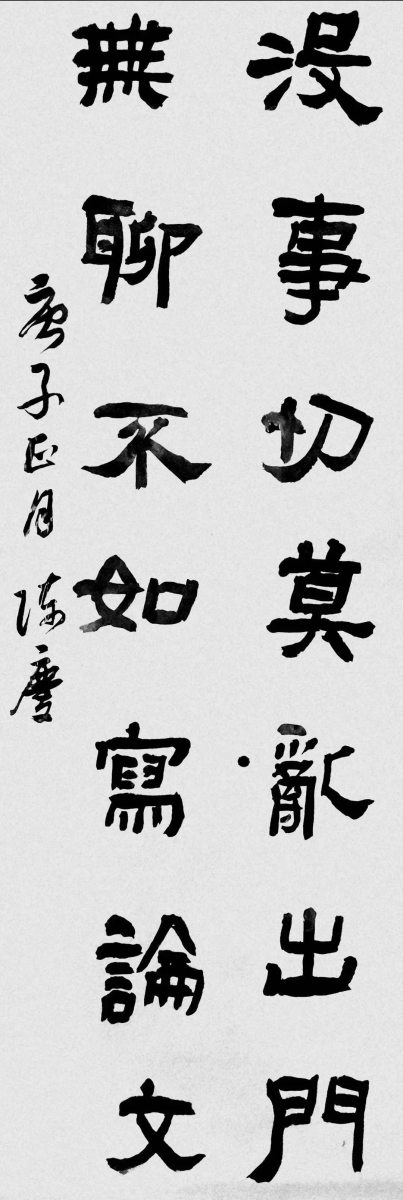 没事切莫亂出門
無聊不如寫論文
庚子正月 陳慶